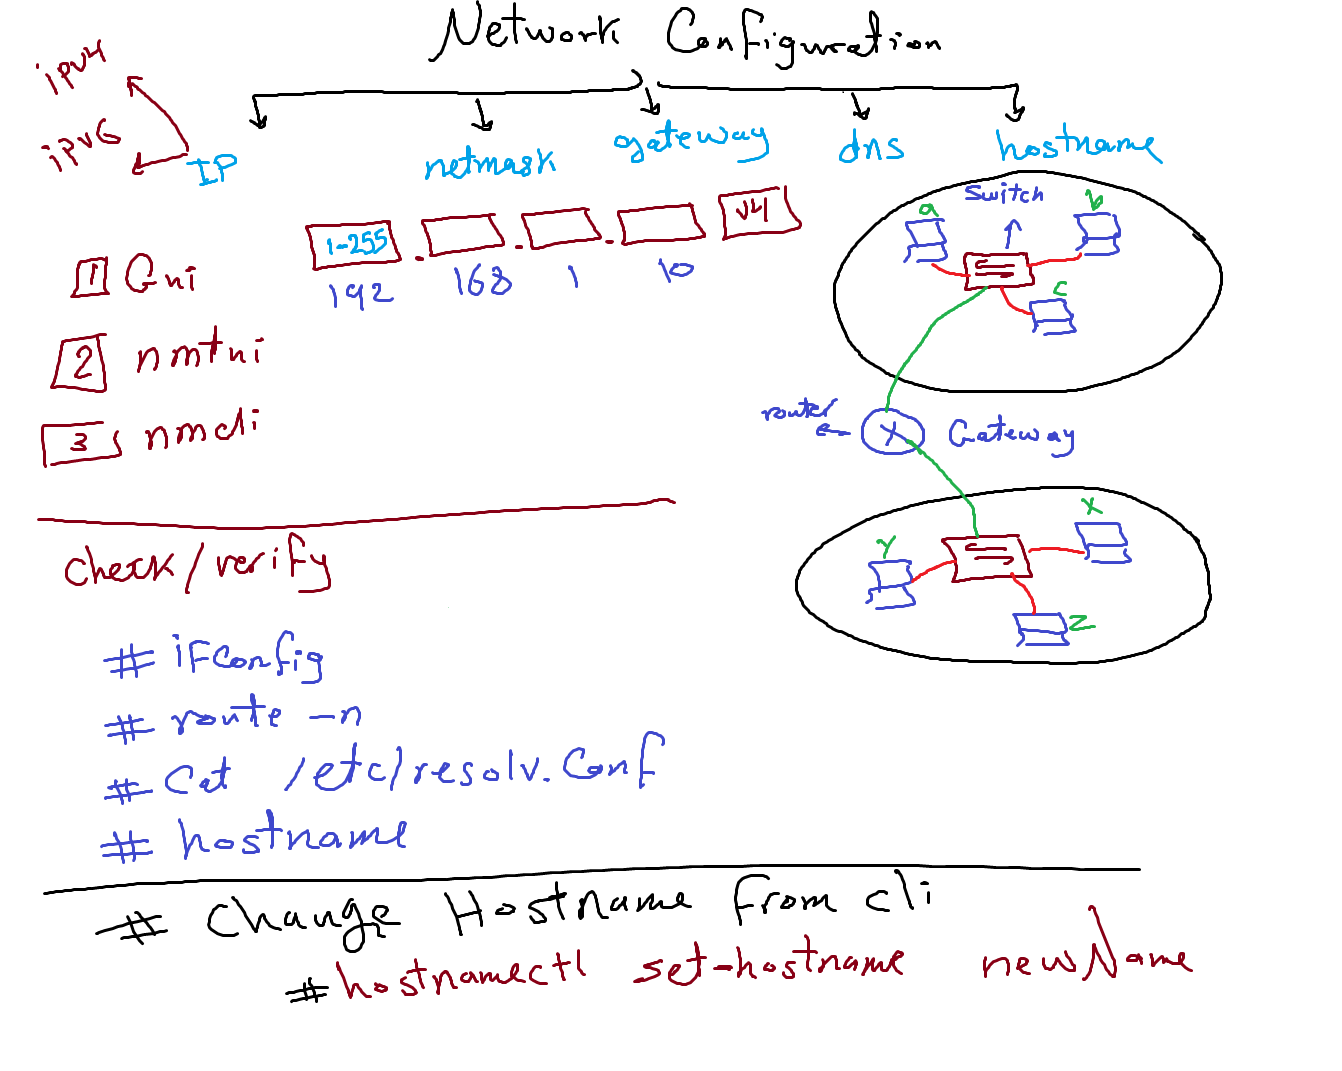 Network Configuration
ipv4
ipv6
IP netmask gateway dns hostname
1-255 . . . v4
192 168 1 10
1 Gui
2 nmtui
3 nmcli
Switch
a b
c
router Gateway
x
y
z
check/verify
# ifconfig
# route -n
# Cat /etc/resolv.conf
# hostname
# Change Hostname from cli
# hostnamectl set-hostname newName